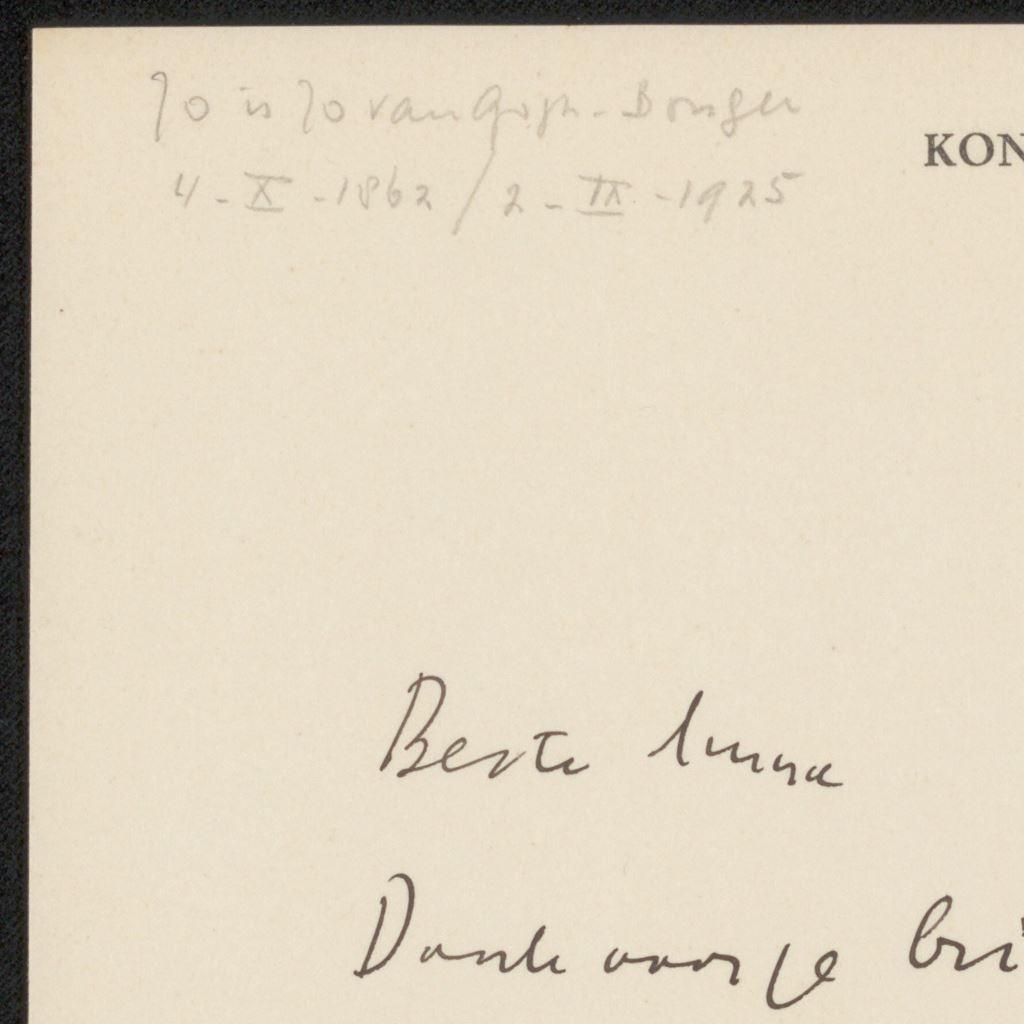 Jo is Jo van Gogh-Bonger
4-X-1862/2-IX-1925
KON
Beste
Dank voor je bri